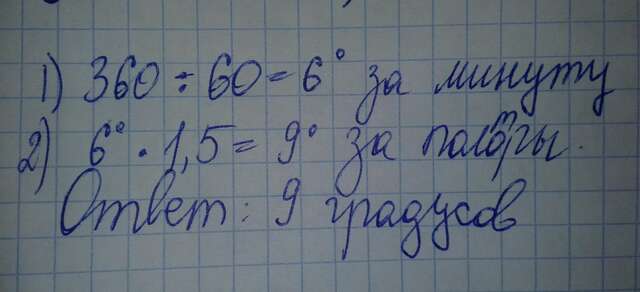 1) 360 ÷ 60 = 6° за минуту
2) 6° · 1,5 = 9° за полторы.
Ответ: 9 градусов